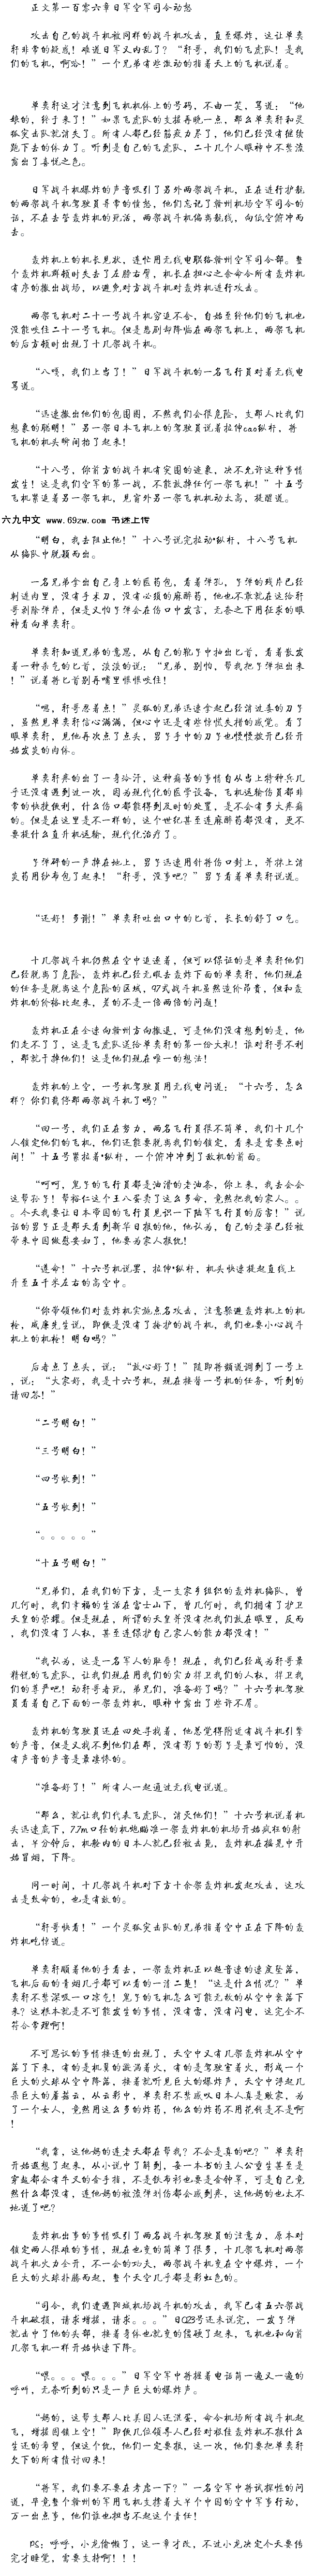 正文第一百零六章日军空军司令动怒
攻击自己的战斗机被同样的战斗机攻击,直至爆炸,这让单奕
轩非常的疑惑!难道日军又内乱了?“轩哥,我们的飞虎队!是我
们的飞机,啊哈!”一个兄弟有些激动的指着天上的飞机说着。
单奕轩这才注意到飞机机体上的号码,不由一笑,骂道:“他
娘的,终于来了!”如果飞虎队的支援再晚一点,那么单奕轩和灵
狐突击队就消失了。所有人都已经筋疲力尽了,他们已经没有继续
跑下去的体力了。听到是自己的飞虎队,二十几个人眼神中不禁流
露出了喜悦之色。
日军战斗机爆炸的声音吸引了另外两架战斗机,正在进行护航
的两架战斗机驾驶员异常的愤怒,他们忘记了赣州机场空军司令的
话,不在去管轰炸机的死活,两架战斗机偏离航线,向低空俯冲而
去。
轰炸机上的机长见状,连忙用无线电联络赣州空军司令部。整
个轰炸机群顿时失去了左膀右臂,机长在担心之余命令所有轰炸机
有序的撤出战场,以避免对方战斗机对轰炸机进行攻击。
两架飞机对二十一号战斗机穷追不舍,自始至终他们的飞机也
没能咬住二十一号飞机。但是悲剧却降临在两架飞机上,两架飞机
的后方顿时出现了十几架战斗机。
“八嘎,我们上当了!”日军战斗机的一名飞行员对着无线电
骂道。
“迅速撤出他们的包围圈,不然我们会很危险,支那人比我们
想象的聪明!”另一架日本飞机上的驾驶员说着拉伸cao纵杆,将
飞机的机头瞬间抬了起来!
“十八号,你前方的战斗机有突围的迹象,决不允许这种事情
发生!这是我们空军的第一战,不能放掉任何一架飞机!”十五号
飞机紧追着另一架飞机,见窗外另一架飞机机动太高,提醒道。
六九中文 www.69zw.com 书迷上传
“明白,我去阻止他!”十八号说完拉动*纵杆,十八号飞机
从编队中脱颖而出。
一名兄弟拿出自己身上的医药包,看着弹孔,子弹的残片已经
刺进肉里,没有手术刀,没有必须的麻醉药,他也不敢就在这给轩
哥剥除弹片,但是又怕子弹会在伤口中发言,无奈之下用征求的眼
神看向单奕轩。
单奕轩知道兄弟的意思,从自己的靴子中抽出匕首,看着散发
着一种杀气的匕首,淡淡的说:“兄弟,别怕,帮我把子弹抠出来
!”说着将匕首别再嘴里狠狠咬住!
“嗯,轩哥忍着点!”灵狐的兄弟迅速拿起已经消过毒的刀子
,虽然见单奕轩信心满满,但心中还是有些惊慌失措的感觉。看了
眼单奕轩,见他再次点了点头,男子手中的刀子也慢慢拨开已经开
始发炎的肉体。
单奕轩疼的出了一身冷汗,这种痛苦的事情自从当上特种兵几
乎还没有遇到过一次,因为现代化的医学设备,飞机运输伤员都非
常的快捷铁利,什么伤口都能得到及时的处置,是不会有多大疼痛
的。但是在这里是不一样的,这个世纪甚至连麻醉药都没有,更不
要提什么直升机运输,现代化治疗了。
子弹砰的一声掉在地上,男子迅速用针将伤口封上,并抹上消
炎药用纱布包了起来!“轩哥,没事吧?”男子看着单奕轩说道。
“还好!多谢!”单奕轩吐出口中的匕首,长长的舒了口气。
十几架战斗机仍然在空中追逐着,但可以保证的是单奕轩他们
已经脱离了危险,轰炸机已经无暇去轰炸下面的单奕轩,他们现在
的任务是脱离这个危险的区域,97式战斗机虽然造价昂贵,但和轰
炸机的价格比起来,差的不是一倍两倍的问题!
轰炸机正在全速向赣州方向撤退,可是他们没有想到的是,他
们走不了了,这是飞虎队送给单奕轩的第一份大礼!谁对轩哥不利
,那就干掉他们!这是他们现在唯一的想法!
轰炸机的上空,一号机驾驶员用无线电问道:“十六号,怎么
样?你们截停那两架战斗机了吗?”
“回一号,我们正在努力,两名飞行员很不简单,我们十几个
人锁定他们的飞机,他们还能要脱离我们的锁定,看来是需要点时
间!”十五号紧拉着*纵杆,一个俯冲冲到了敌机的前面。
“呵呵,鬼子的飞行员都是油滑的老油条,你上来,我去会会
这帮孙子!帮裕仁这个王八蛋卖了这么多命,竟然把我的家人。。
。今天我要让日本帝国的飞行员见识一下陆军飞行员的厉害!”说
话的男子正是那天看到新华日报的他,他认为,自己的老婆已经被
带来中国做慰安妇了,他要为家人报仇!
“遵命!”十六号机说罢,拉伸*纵杆,机头快速提起直线上
升至五千米左右的高空中。
“你带领他们对轰炸机实施点名攻击,注意躲避轰炸机上的机
枪,威廉先生说,即使是没有了掩护的战斗机,我们也要小心战斗
机上的机枪!明白吗?”
后者点了点头,说:“放心好了!”随即将频道调到了一号上
,说:“大家好,我是十六号机,现在接替一号机的任务,听到的
请回答!”
“二号明白!”
“三号明白!”
“四号收到!”
“五号收到!”
“。。。。。”
“十五号明白!”
“兄弟们,在我们的下方,是一支家乡组织的轰炸机编队,曾
几何时,我们幸福的生活在富士山下,曾几何时,我们拥有了护卫
天皇的荣耀。但是现在,所谓的天皇并没有把我们放在眼里,反而
,我们没有了人权,甚至连保护自己家人的能力都没有!”
“我认为,这是一名军人的耻辱!现在,我们已经成为轩哥最
精锐的飞虎队,让我们现在用我们的实力捍卫我们的人权,捍卫我
们的尊严吧!动轩哥者死,弟兄们,准备好了吗?”十六号机驾驶
员看着自己下面的一架轰炸机,眼神中露出了些许不屑。
轰炸机的驾驶员还在四处寻找着,他总觉得附近有战斗机引擎
的声音,但是又找不到他们在那,没有影子的影子是最可怕的,没
有声音的声音是最凄惨的。
“准备好了!”所有人一起通过无线电说道。
“那么,就让我们代表飞虎队,消灭他们!”十六号机说着机
头迅速底下,7.7m口径的机炮瞄准一架轰炸机的机场开始疯狂的射
击,半分钟后,机舱内的日本人就已经被击毙,轰炸机在摇晃中开
始冒烟,下降。
同一时间,十几架战斗机对下方十余架轰炸机发起攻击,这攻
击是致命的,也是有效的。
“轩哥快看!”一个灵狐突击队的兄弟指着空中正在下降的轰
炸机吃惊道。
单奕轩顺着他的手看去,一架轰炸机正以超音速的速度坠落,
飞机后面的青烟几乎都可以看的一清二楚!“这是什么情况?”单
奕轩不禁深吸一口凉气!鬼子的飞机怎么可能无故的从空中乘落下
来?这根本就是不可能发生的事情,没有雷,没有闪电,这完全不
符合常理啊!
不可思议的事情接连的出现了,天空中又有几架轰炸机从空中
落了下来,有的是机翼的漩涡着火,有的是驾驶室着火,形成一个
巨大的火球从空中降落,接着就听见巨大的爆炸声,天空中浮起几
朵巨大的蘑菇云,从云彩中,单奕轩不禁感叹日本人真是败家,为
了一个女人,竟然用这么多的炸药,他么的炸药不用花钱是不是啊
!
“我靠,这他妈的连老天都在帮我?不会是真的吧?”单奕轩
开始遐想了起来,从小说中了解到,每一本书的主人公重生甚至是
穿越都会有牛叉的金手指,不是铁布衫也要是金钟罩,可是自己竟
然什么都没有,连他妈的被流弹划伤都会感到疼,这他妈的也太不
地道了吧?
轰炸机出事的事情吸引了两名战斗机驾驶员的注意力,原本对
锁定两人很难的事情,现在也变的简单了很多,十几架飞机对两架
战斗机火力全开,不一会的功夫,两架战斗机变在空中爆炸,一个
巨大的火球扑腾而起,整个天空几乎都是彩虹色的。
“司令,我们遭遇阳城机场战斗机的攻击,我军已有五六架战
斗机破损,请求增援,请求。。。”日Q23号还未说完,一发子弹
就击中了他的头部,接着身体也就变的僵硬了起来,飞机也和向前
几架飞机一样开始快速下降。
“喂。。。喂。。。”日军空军中将握着电话筒一遍又一遍的
呼叫,无奈听到的只是一声巨大的爆炸声。
“妈的,这帮支那人比美国人还混蛋,命令机场所有战斗机起
飞,增援固镇上空!”即使几位领导人已经对被住轰炸机不报什么
生还的希望,但这个仇,他们一定要报,这一次,他们要把单奕轩
欠下的所有债讨回来!
“将军,我们要不要在考虑一下?”一名空军中将试探性的问
道,毕竟整个赣州的军用飞机支撑着大半个中国的空中军事行动,
万一出点事,他们谁也担当不起这个责任!
PS:呼呼,小龙偷懒了,这一章才改,不过小龙决定今天要传
完才睡觉,需要支持啊!!!